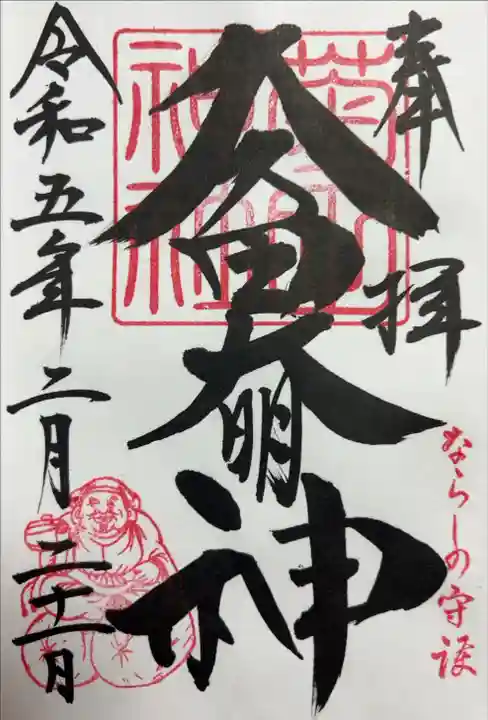 奉拝
ならしの守護
久久田大明神
菊田
神社
令和五年二月二十一日